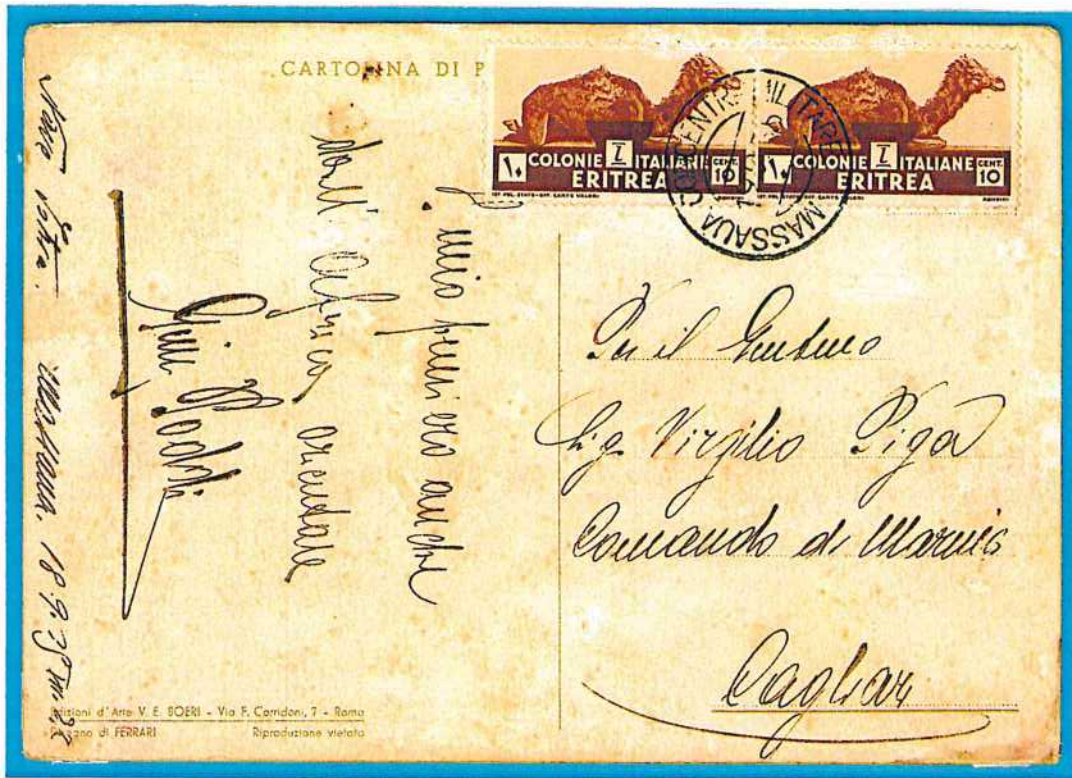 CARTOLINA DI P
COLONIE ITALIANE CENT. 10
ERITREA
COLONIE ITALIANE CENT. 10
ERITREA
CONCENTR. MILITARE MASSAUA
mio pensiero anche
dall'africa orientale
Nave
Massaua, 18.9.35
Per il
Sig. Virgilio Piga
Comando di Marina
Cagliari
Edizioni d'Arte V. E. BOERI - Via F. Corridoni, 7 - Roma
Disegno di FERRARI Riproduzione vietata